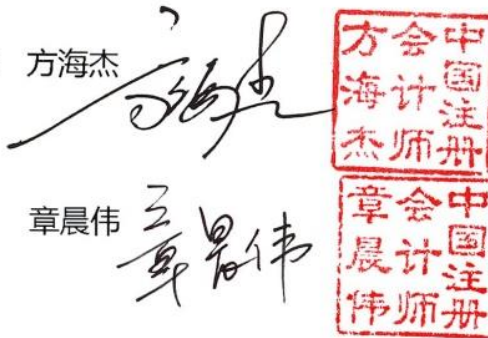 方海杰
方海杰
中国注册
会计师
方海杰
章晨伟
章晨伟
中国注册
会计师
章晨伟